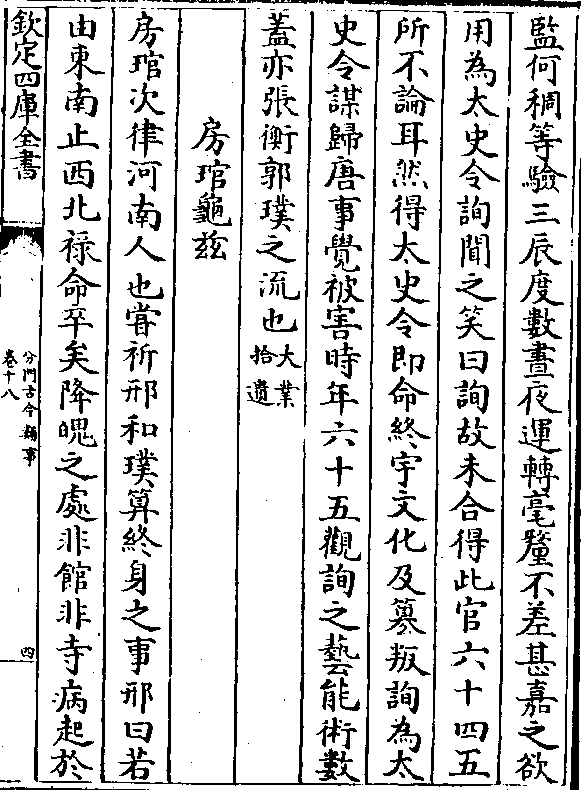 監何稠等驗三辰度數晝夜運轉毫釐不差甚嘉之欲
用為太史令詢聞之笑曰詢故未合得此官六十四五
所不論耳然得太史令即命終宇文化及簒叛詢為太
史令謀歸唐事覺被害時年六十五觀詢之藝能術數
蓋亦張衡郭璞之流也大業
拾遺
房琯龜兹
房琯次律河南人也嘗祈邢和璞算終身之事邢曰若
由東南止西北禄命卒矣降魄之處非館非寺病起於
欽定四庫全書
分門古今類事
卷十八
四